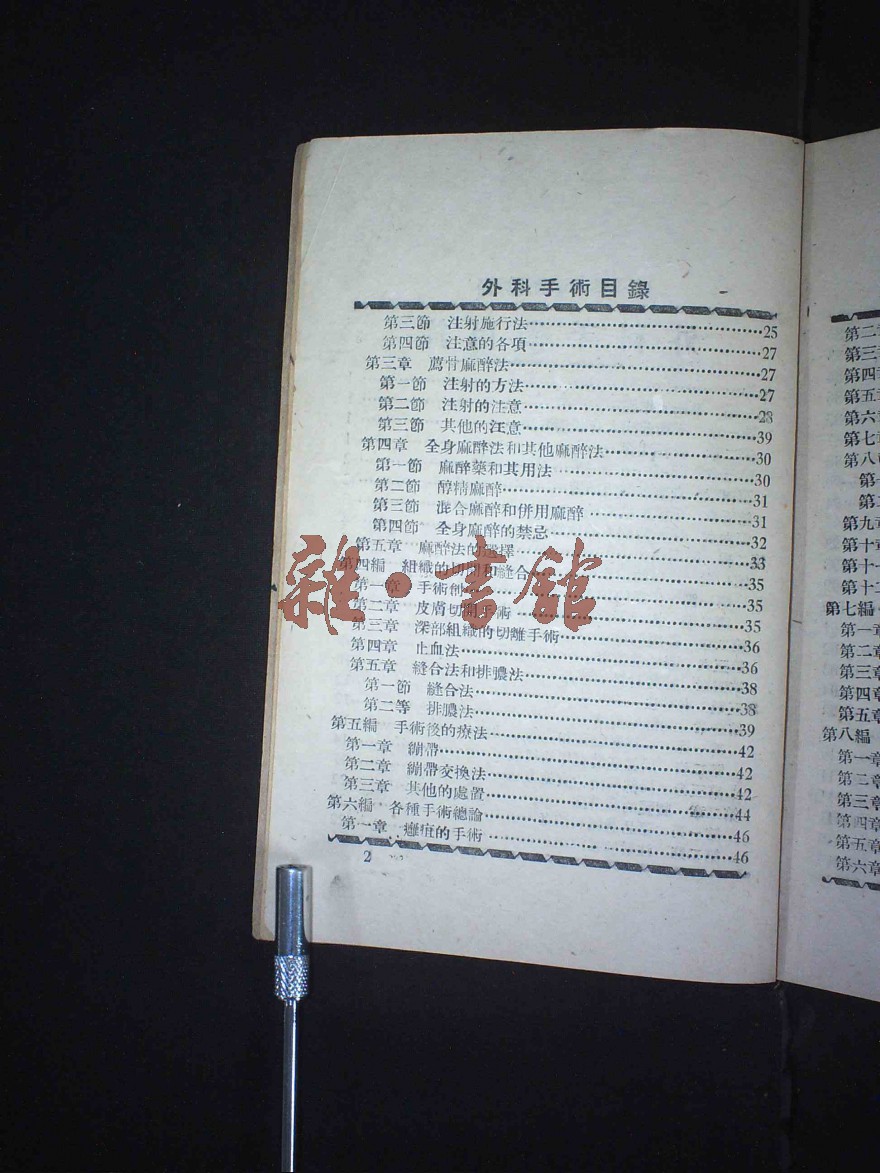 外科手術目錄
第三節 注射施行法……25
第四節 注意的各項……27
第三章 薦骨麻醉法……27
第一節 注射的方法……27
第二節 注射的注意……28
第三節 其他的注意……39
第四章 全身麻醉法和其他麻醉法……30
第一節 麻醉藥和其用法……30
第二節 醇精麻醉……31
第三節 混合麻醉和併用麻醉……31
第四節 全身麻醉的禁忌……32
第五章 麻醉法的選擇……33
第四編 組織的切開和縫合……35
第一章 手術創……35
第二章 皮膚切割手術……35
第三章 深部組織的切離手術……36
第四章 止血法……36
第五章 縫合法和排膿法……38
第一節 縫合法……38
第二等 排膿法……39
第五編 手術後的療法……42
第一章 繃帶……42
第二章 繃帶交換法……42
第三章 其他的處置……44
第六編 各種手術總論……46
第一章 癰疽的手術……46
2
雜·書館
第二
第三
第四
第五
第六
第七
第八
第一
第二
第九
第十
第十一
第十二
第七編
第一章
第二章
第三章
第四章
第五章
第八編
第一章
第二章
第三章
第四章
第五章
第六章